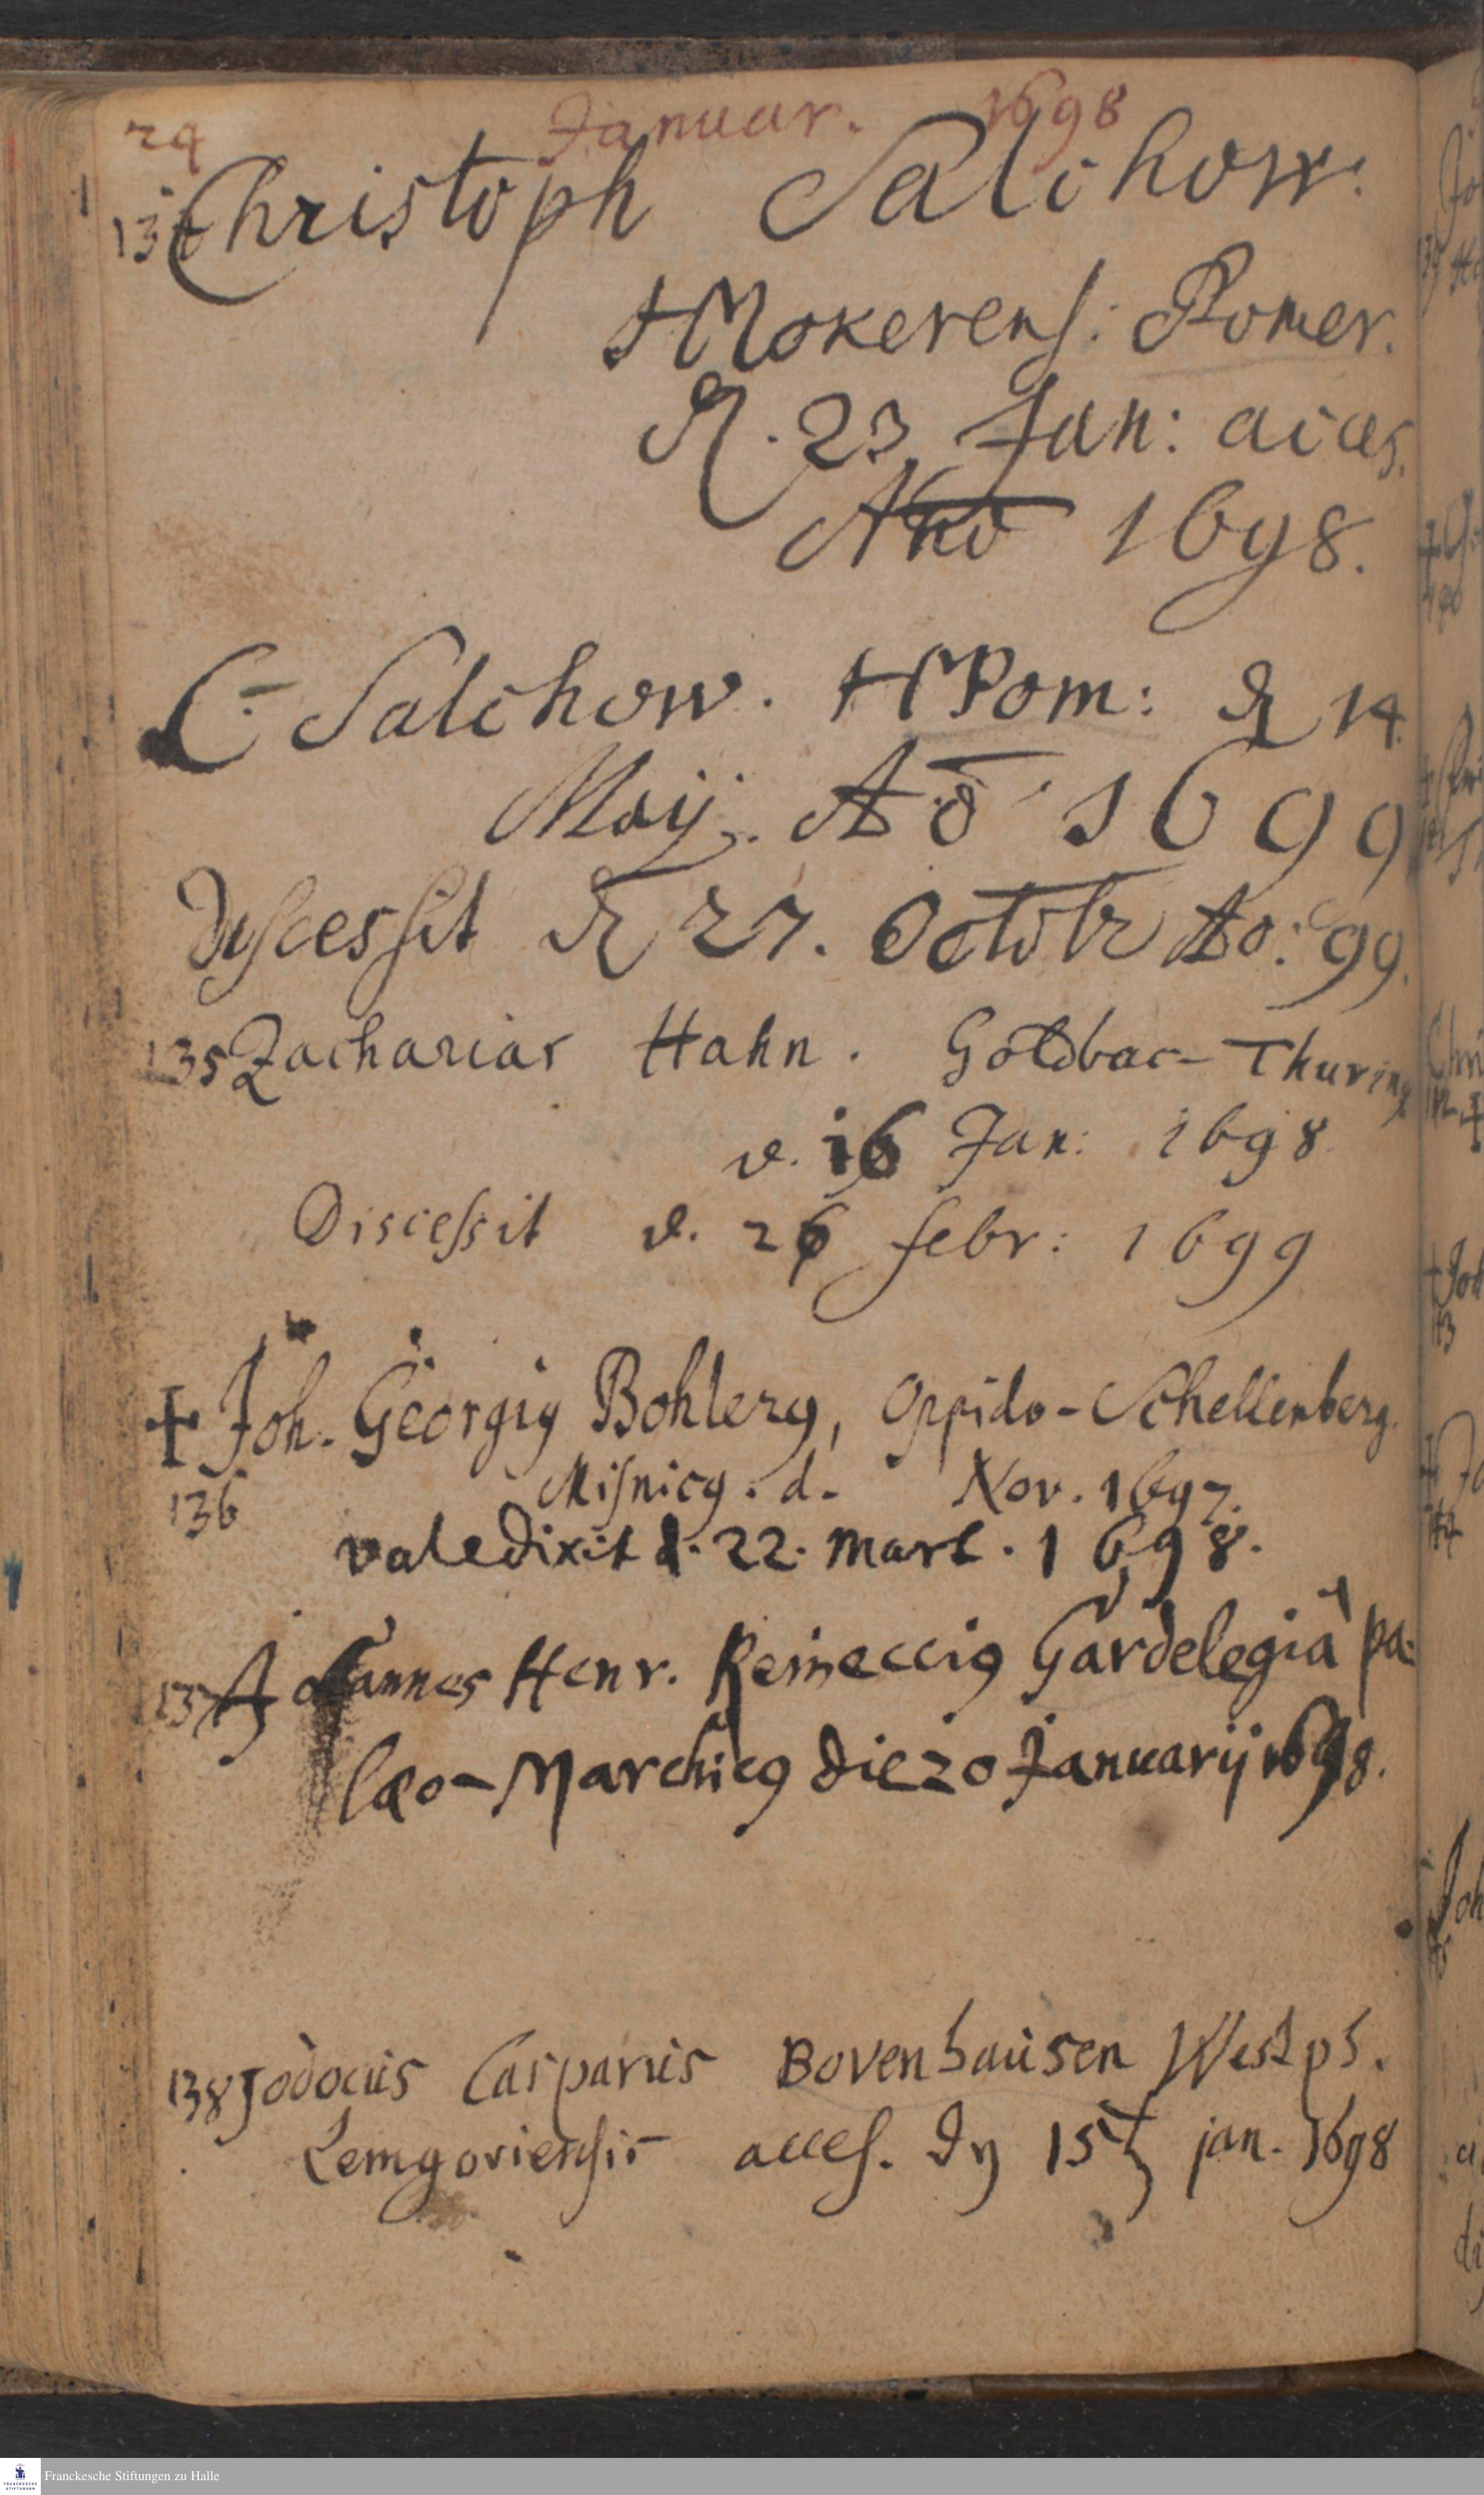 24 Januar. 1698
134 Christoph Salchow.
Mokerens: Pomer.
d. 23 Jan:
Ano 1698.
C. Salchow. Pom: d 14.
Maij. Ao 1699
Discessit d 27. Octobr Ao. 99.
135 Zacharias Hahn. Goldbac-Thuring
d. 16 Jan: 1698.
Discessit d. 26 febr: 1699
+ Joh. Georgig Bohlerg, Oppido-Schellenberg.
136 Misnicg. d. Nov. 1697.
valedixit d. 22. Mart. 1698.
137 Johannes Henr. Reineccig Gardelegiâ pa-
læo-Marchicg die 20 Januarij 1698.
138 Jodocus Casparus Bovenhausen Westph.
Lemgoviensis acces. 15 jan. 1698
Franckesche Stiftungen zu Halle